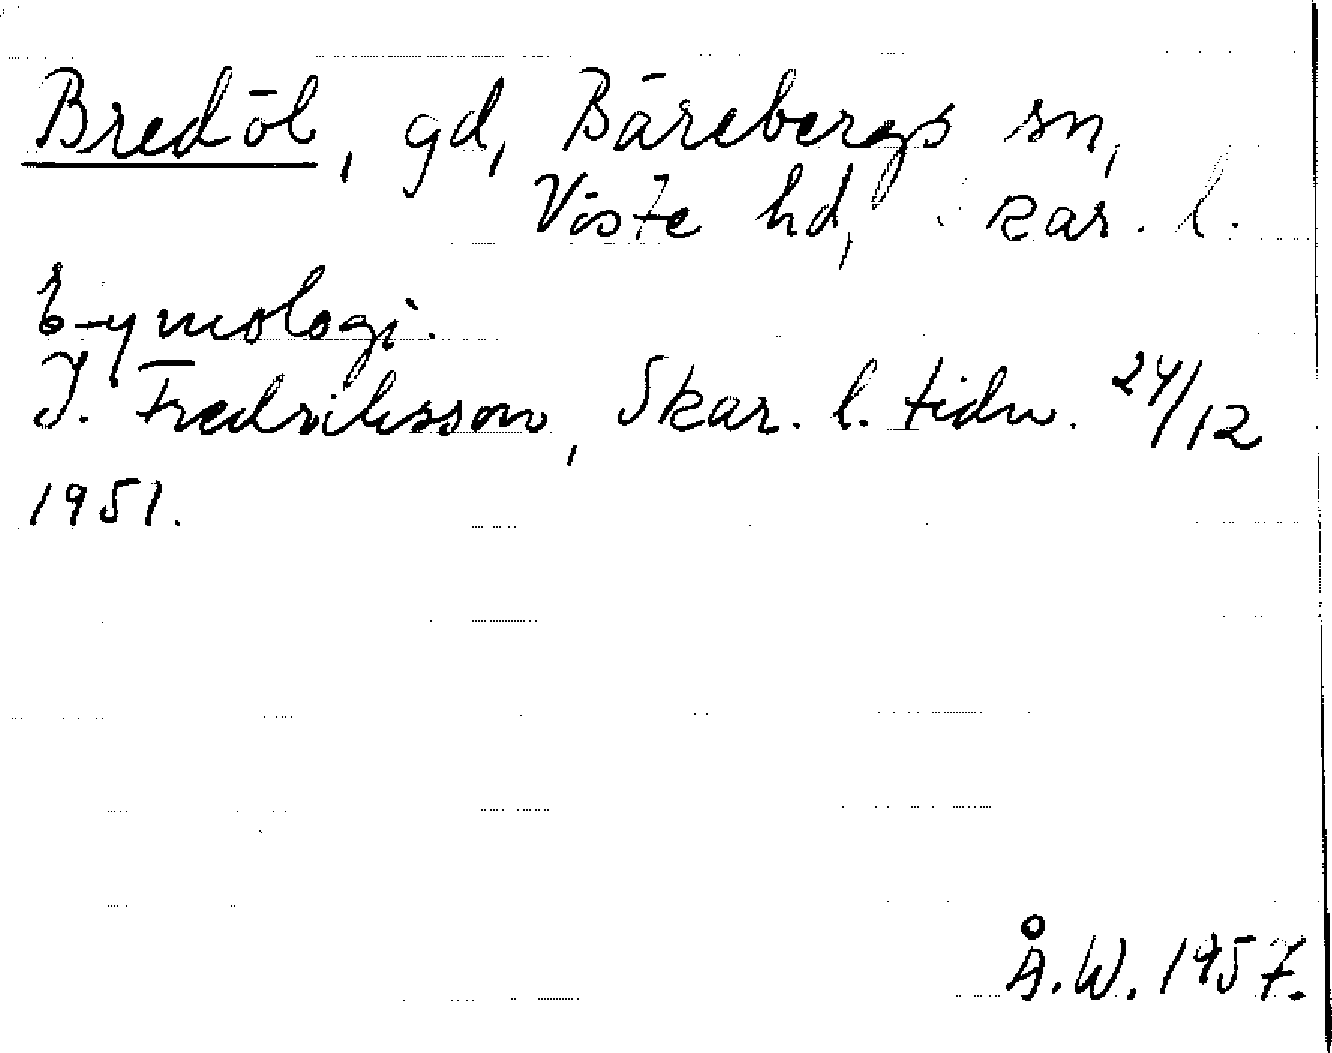 Bredöl, gd, Bärebergs sn,
Viste hd, Skar. l.
Etymologi.
I. Fredriksson, Skar. l. tidn. 24/12
1951.
Å.W. 1957.